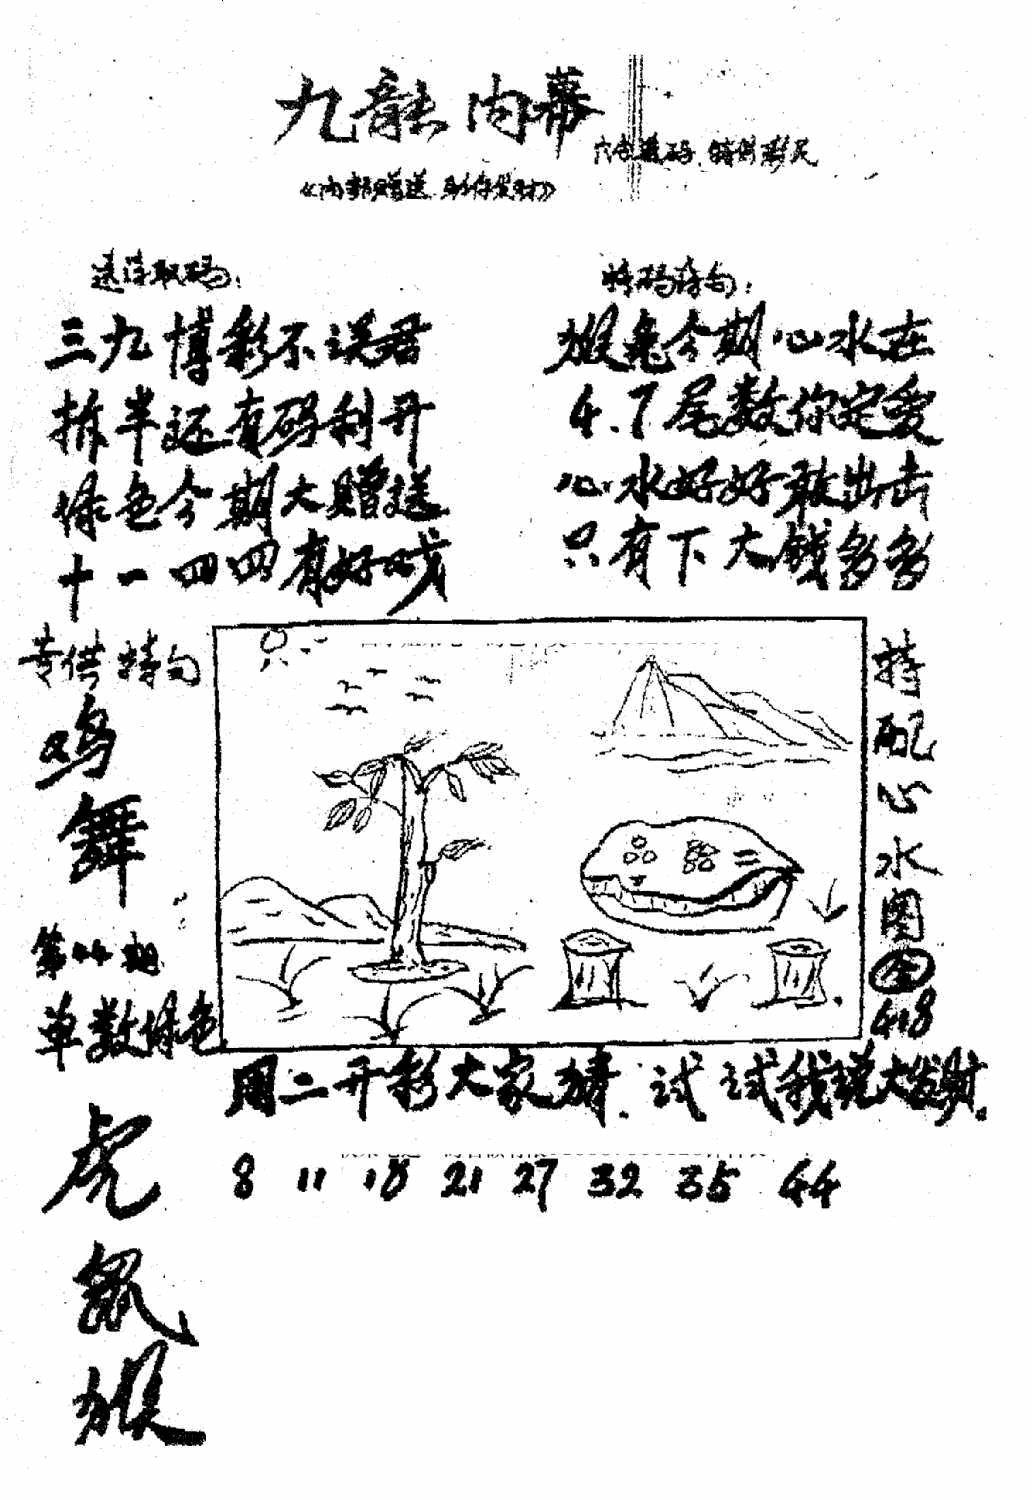 九龍内幕
六合透码.特供彩民
《内部赠送.助你发财》
送诗取码:
三九博彩不误君
拆半还有码利开
绿色今期大赠送
十一四四有好戏
特码诗句:
猴兔今期心水在
4.7尾数你定爱
心水好好敢出击
只有下大钱多多
专供特句
鸡
舞
第44期
单数绿色
虎
鼠
猴
特配心水图
418
用二开彩大家猜.试试我说大发财.
8 11 18 21 27 32 35 44